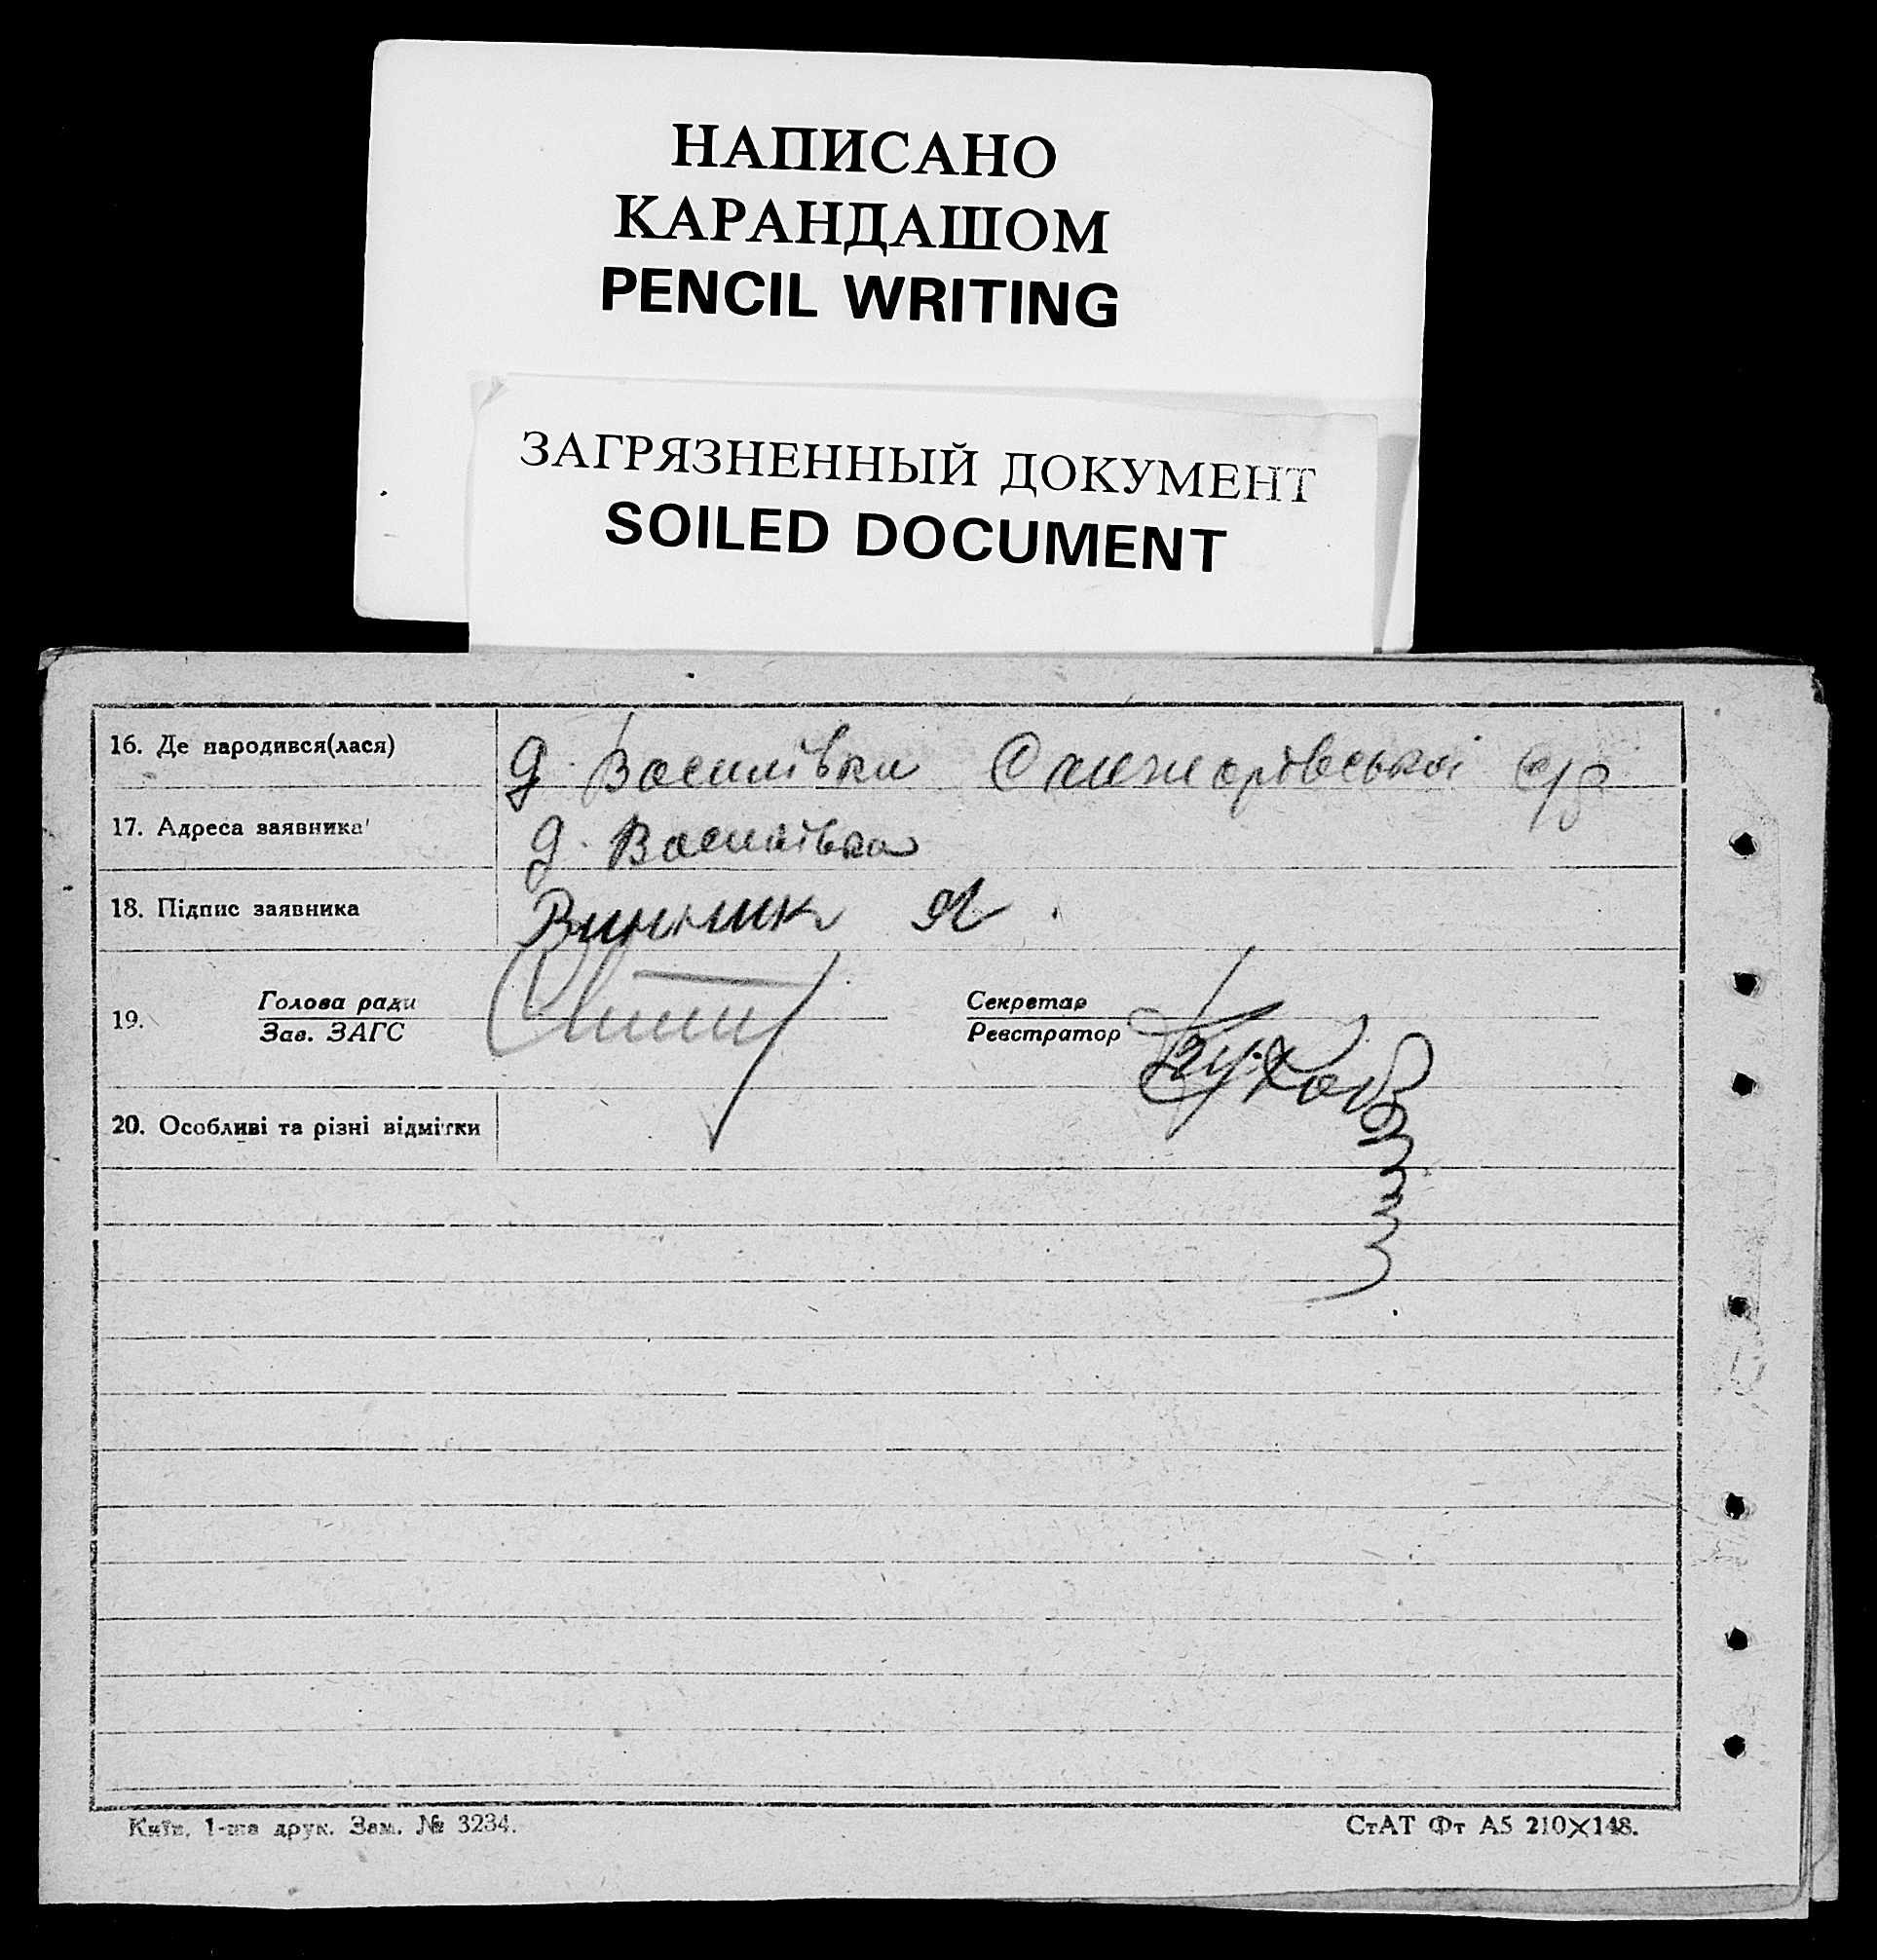 НАПИСАНО
КАРАНДАШОМ
PENCIL WRITING
ЗАГРЯЗНЕННЫЙ ДОКУМЕНТ
SOILED DOCUMENT
16. Де народився(лася) д. Василівка с/р
17. Адреса заявника д. Василівка
18. Підпис заявника Винник Я.
19. Голова ради Секретар
Зав. ЗАГС Реєстратор
20. Особливі та різні відмітки
Київ, 1-ша друк. Зам. № 3234.
СтАТ Фт А5 210×148.